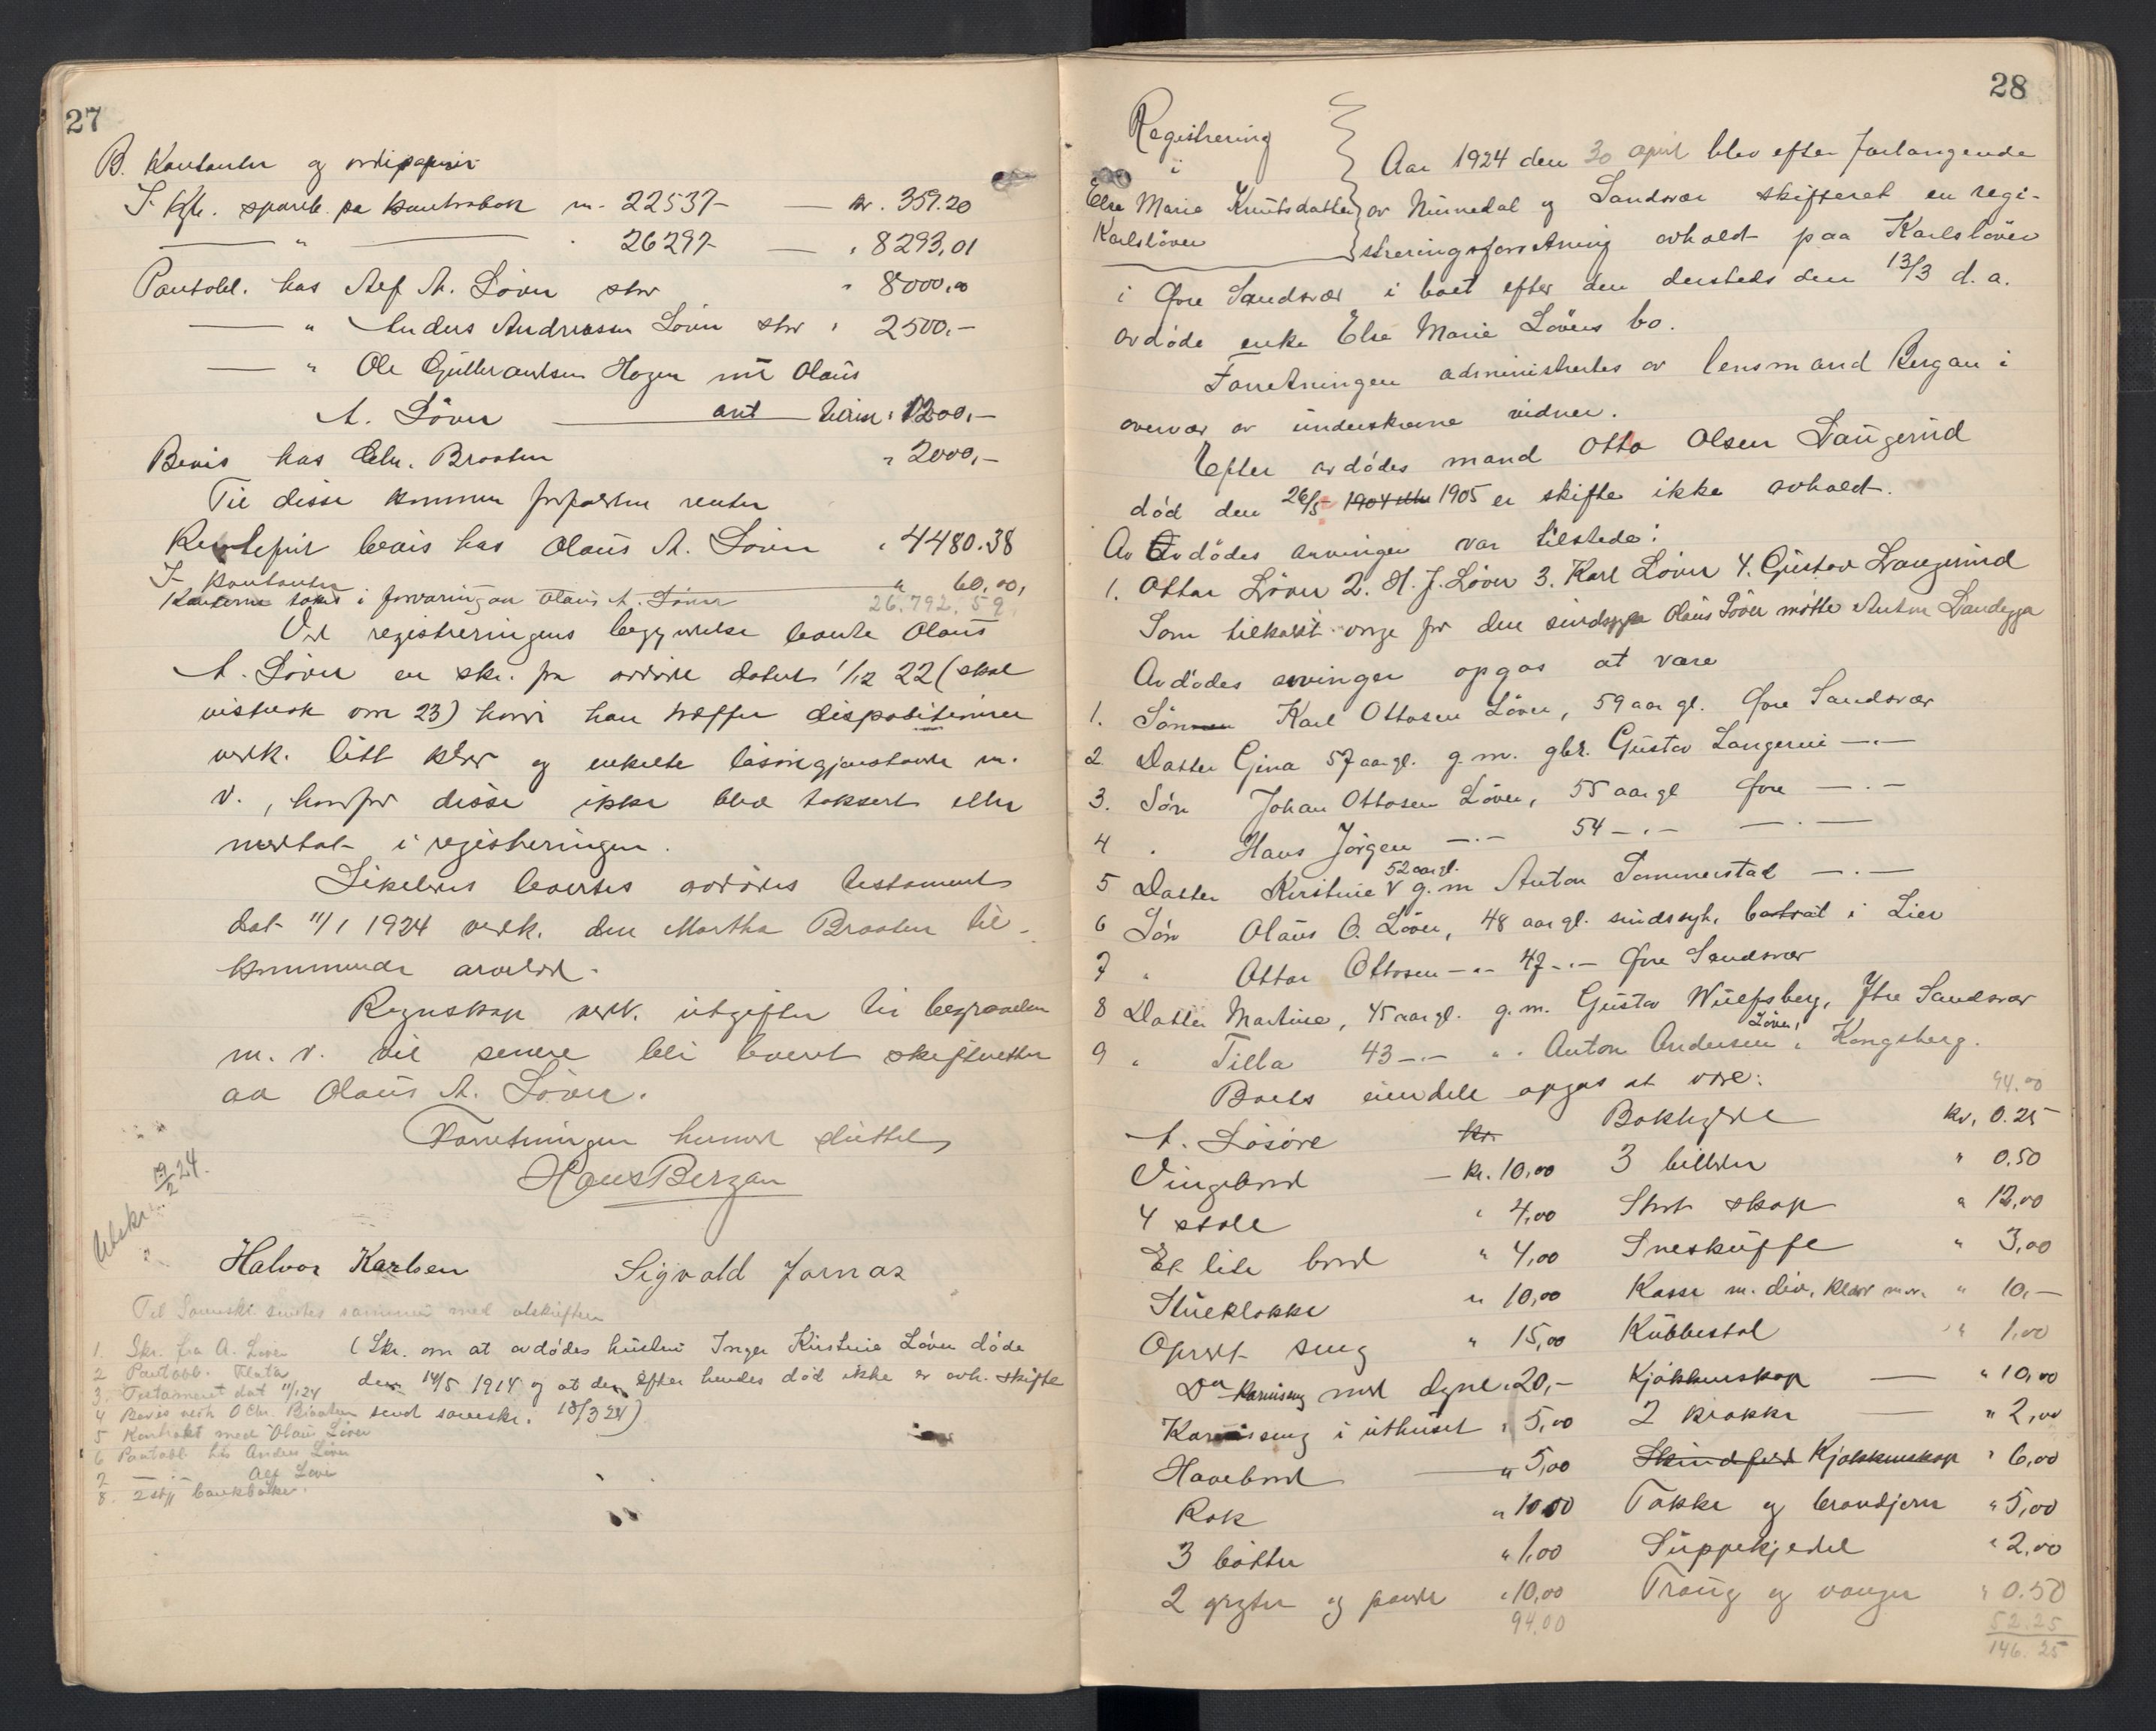 27
B. Kontanter og verdipapir
I Kgb. spareb. pa kontrabok nr. 22537 — kr. 359.20
— " — 26297 — " 8293,01
Pantobl. hos Alf A. Löver stor " 8000,00
— " Anders Andreassen Löver stor " 2500,—
— " Ole Gulbrandsen Hagen nu Olaus
A. Löver — ant — " 1200,—
Bevis hos Chr. Braaten " 2000,—
Til disse kommer forfaldne renter
Rentefrit bevis hos Olaus A. Löver " 4480.38
I kontanter " 60,00,
Kontanterne toges i forvaring av Olaus A. Löver 26.792.59
Ved registreringens begyndelse leverte Olaus
A. Löver en skr. fra avdöde datert 1/12 22 (skal
vistnok være 23) hvori han træffer dispositioner
vedk. litt klær og enkelte lösöregjenstande m.
v., hvorfor disse ikke blev taksert eller
medtat i registreringen.
Likeledes levertes avdödes testament
dat 11/1 1924 vedk. den Martha Braaten til-
kommende arvelod.
Regnskap vedk. utgifter til begravelse
m. v. vil senere bli levert skifteretten
av Olaus A. Löver.
Forretningen hermed sluttet
Hans Bergan
Utskr. 19/2 24.
Halvor Karlsen Sigvald Jarnas
Til Sorenskr. sendes sammen med utskriften
1. Skr. fra A. Löver
2 Pantobl. Flata
3. Testamentet dat 11/1 24
4 Bevis vedk O Chr. Braaten
5 Kontrakt med Olaus Löver
6 Pantobl hos Anders Löver
7 — " — Alf Löver
8. 2 stk bankböker.
(Skr. om at avdödes hustru Inger Kirstine Löver döde
den 14/5 1914 og at der efter hendes död ikke er avh. skifte
sendt sorenskr. 18/3 24)
28
Registrering
i
Else Marie Knutsdatter
Karlslöver
Aar 1924 den 30 april blev efter forlangende
av Numedal og Sandsvær skifteret en regi-
streringsforretning avholdt paa Karlslöver
i Øvre Sandsvær i boet efter den dersteds den 13/3 d. a.
avdöde enke Else Marie Lövers bo.
Forretningen administrertes av lensmand Bergan i
overvær av underskrevne vidner.
Efter avdödes mand Otto Olsen Laugerud
död den 26/5 1904 eller 1905 er skifte ikke avholdt.
Av Avdödes arvinger var tilstede:
1. Ottar Löver 2. H. J. Löver 3. Karl Löver 4. Gustav Laugerud
Som tilkaldt verge for den sindssyge Olaus Löver mötte Anton Landegga
Avdödes arvinger opgas at være
1. Sönnen Karl Ottosen Löver, 59 aar gl. Øvre Sandsvær
2 Datter Gina 57 aar gl. g. m. gbr. Gustav Laugerud —"—
3. Sön Johan Ottosen Löver, 55 aar gl Øvre —"—
4 " Hans Jörgen —"— 54 —"— —"—
5 Datter Kirstine 52 aar gl. g. m Anton Tommerstad —"—
6 Sön Olaus O. Löver, 48 aar gl. sindssyk, bortsat i Lier
7 " Ottar Ottosen —"— 47 —"— Øvre Sandsvær
8 Datter Martine, 45 aar gl. g. m. Gustav Wulfsberg, Ytre Sandsvær
9 " Tilla 43 —"— " " Anton Andersen Löver, Kongsberg.
Boets eiendele opgas at være:
94.00
A. Lösöre kr. Bokhylde kr. 0.25
Vingebord — kr. 10,00 3 billeder " 0.50
4 stole " 4,00 Stort skap " 12,00
Et lite bord " 4,00 Sneskuffe " 3,00
Stueklokke " 10,00 Kasse m. div. klær m.v. " 10,—
Opredt seng " 15,00 Kubbestol " 1,00
Do Karmseng med dyne " 20,— Kjökkenskap — " 10,00
Karmseng i uthuset " 5,00 2 krakke — " 2,00
Havebord — " 5,00 Skindfeld Kjökkenskap " 6,00
Rok " 10.00 Takke og brandjern " 5,00
3 bötter " 1,00 Suppekjedel " 2,00
2 gryter og pande " 10,00 Traug og vanger " 0.50
94.00 52.25
146.25